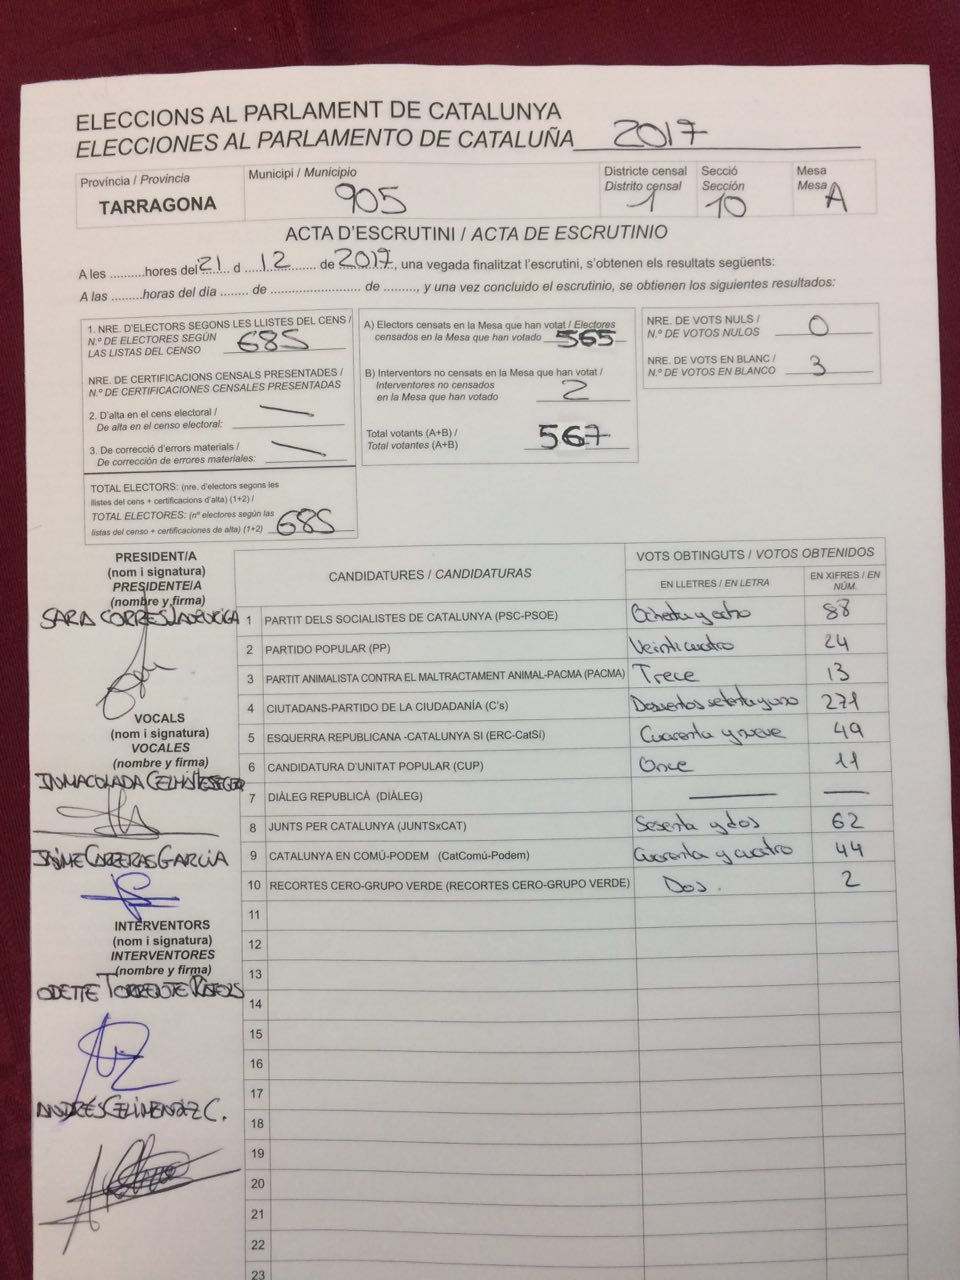 ELECCIONS AL PARLAMENT DE CATALUNYA
ELECCIONES AL PARLAMENTO DE CATALUÑA 2017
Província / Provincia
TARRAGONA
Municipi / Municipio
905
Districte censal
Distrito censal
1
Secció
Sección
10
Mesa
Mesa A
ACTA D'ESCRUTINI / ACTA DE ESCRUTINIO
A les ..........hores del 21 d 12 de 2017, una vegada finalitzat l'escrutini, s'obtenen els resultats següents:
A las .........horas del día ........ de ........................... de ........., y una vez concluido el escrutinio, se obtienen los siguientes resultados:
1. NRE. D'ELECTORS SEGONS LES LLISTES DEL CENS /
N.º DE ELECTORES SEGÚN
LAS LISTAS DEL CENSO 685
NRE. DE CERTIFICACIONS CENSALS PRESENTADES /
N.º DE CERTIFICACIONES CENSALES PRESENTADAS
2. D'alta en el cens electoral /
De alta en el censo electoral: —
3. De correcció d'errors materials /
De corrección de errores materiales: —
TOTAL ELECTORS: (nre. d'electors segons les
llistes del cens + certificacions d'alta) (1+2) /
TOTAL ELECTORES: (nº electores según las
listas del censo + certificaciones de alta) (1+2) 685
A) Electors censats en la Mesa que han votat / Electores
censados en la Mesa que han votado 565
B) Interventors no censats en la Mesa que han votat /
Interventores no censados
en la Mesa que han votado 2
Total votants (A+B) /
Total votantes (A+B) 567
NRE. DE VOTS NULS /
N.º DE VOTOS NULOS 0
NRE. DE VOTS EN BLANC /
N.º DE VOTOS EN BLANCO 3
PRESIDENT/A
(nom i signatura)
PRESIDENTE/A
(nombre y firma)
SARA CORRES
VOCALS
(nom i signatura)
VOCALES
(nombre y firma)
INMACOLADA
JAIME CARRERAS GARCIA
INTERVENTORS
(nom i signatura)
INTERVENTORES
(nombre y firma)
ODETTE TORRENTE
ANDRÉS C.
CANDIDATURES / CANDIDATURAS
VOTS OBTINGUTS / VOTOS OBTENIDOS
EN LLETRES / EN LETRA
EN XIFRES / EN NÚM.
1 PARTIT DELS SOCIALISTES DE CATALUNYA (PSC-PSOE) Ochenta y ocho 88
2 PARTIDO POPULAR (PP) Veinticuatro 24
3 PARTIT ANIMALISTA CONTRA EL MALTRACTAMENT ANIMAL-PACMA (PACMA) Trece 13
4 CIUTADANS-PARTIDO DE LA CIUDADANÍA (C's) Doscientos setenta y uno 271
5 ESQUERRA REPUBLICANA -CATALUNYA SI (ERC-CatSí) Cuarenta y nueve 49
6 CANDIDATURA D'UNITAT POPULAR (CUP) Once 11
7 DIÀLEG REPUBLICÀ (DIÀLEG) — —
8 JUNTS PER CATALUNYA (JUNTSxCAT) Sesenta y dos 62
9 CATALUNYA EN COMÚ-PODEM (CatComú-Podem) Cuarenta y cuatro 44
10 RECORTES CERO-GRUPO VERDE (RECORTES CERO-GRUPO VERDE) Dos. 2
11
12
13
14
15
16
17
18
19
20
21
22
23